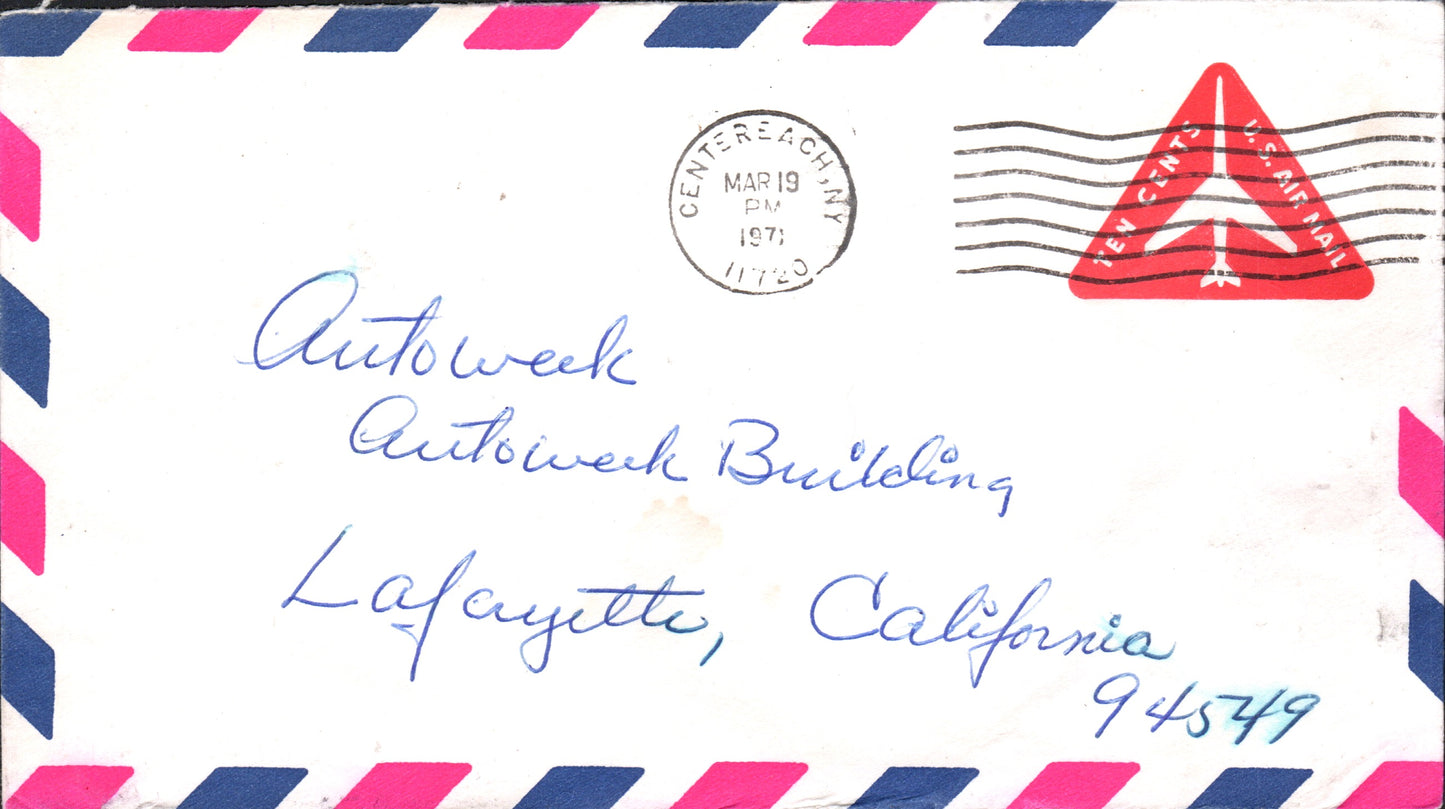 CENTEREACH, NY
MAR 19
PM
1971
11720
TEN CENTS
U.S. AIR MAIL
Autoweek
Autoweek Building
Lafayette, California
94549